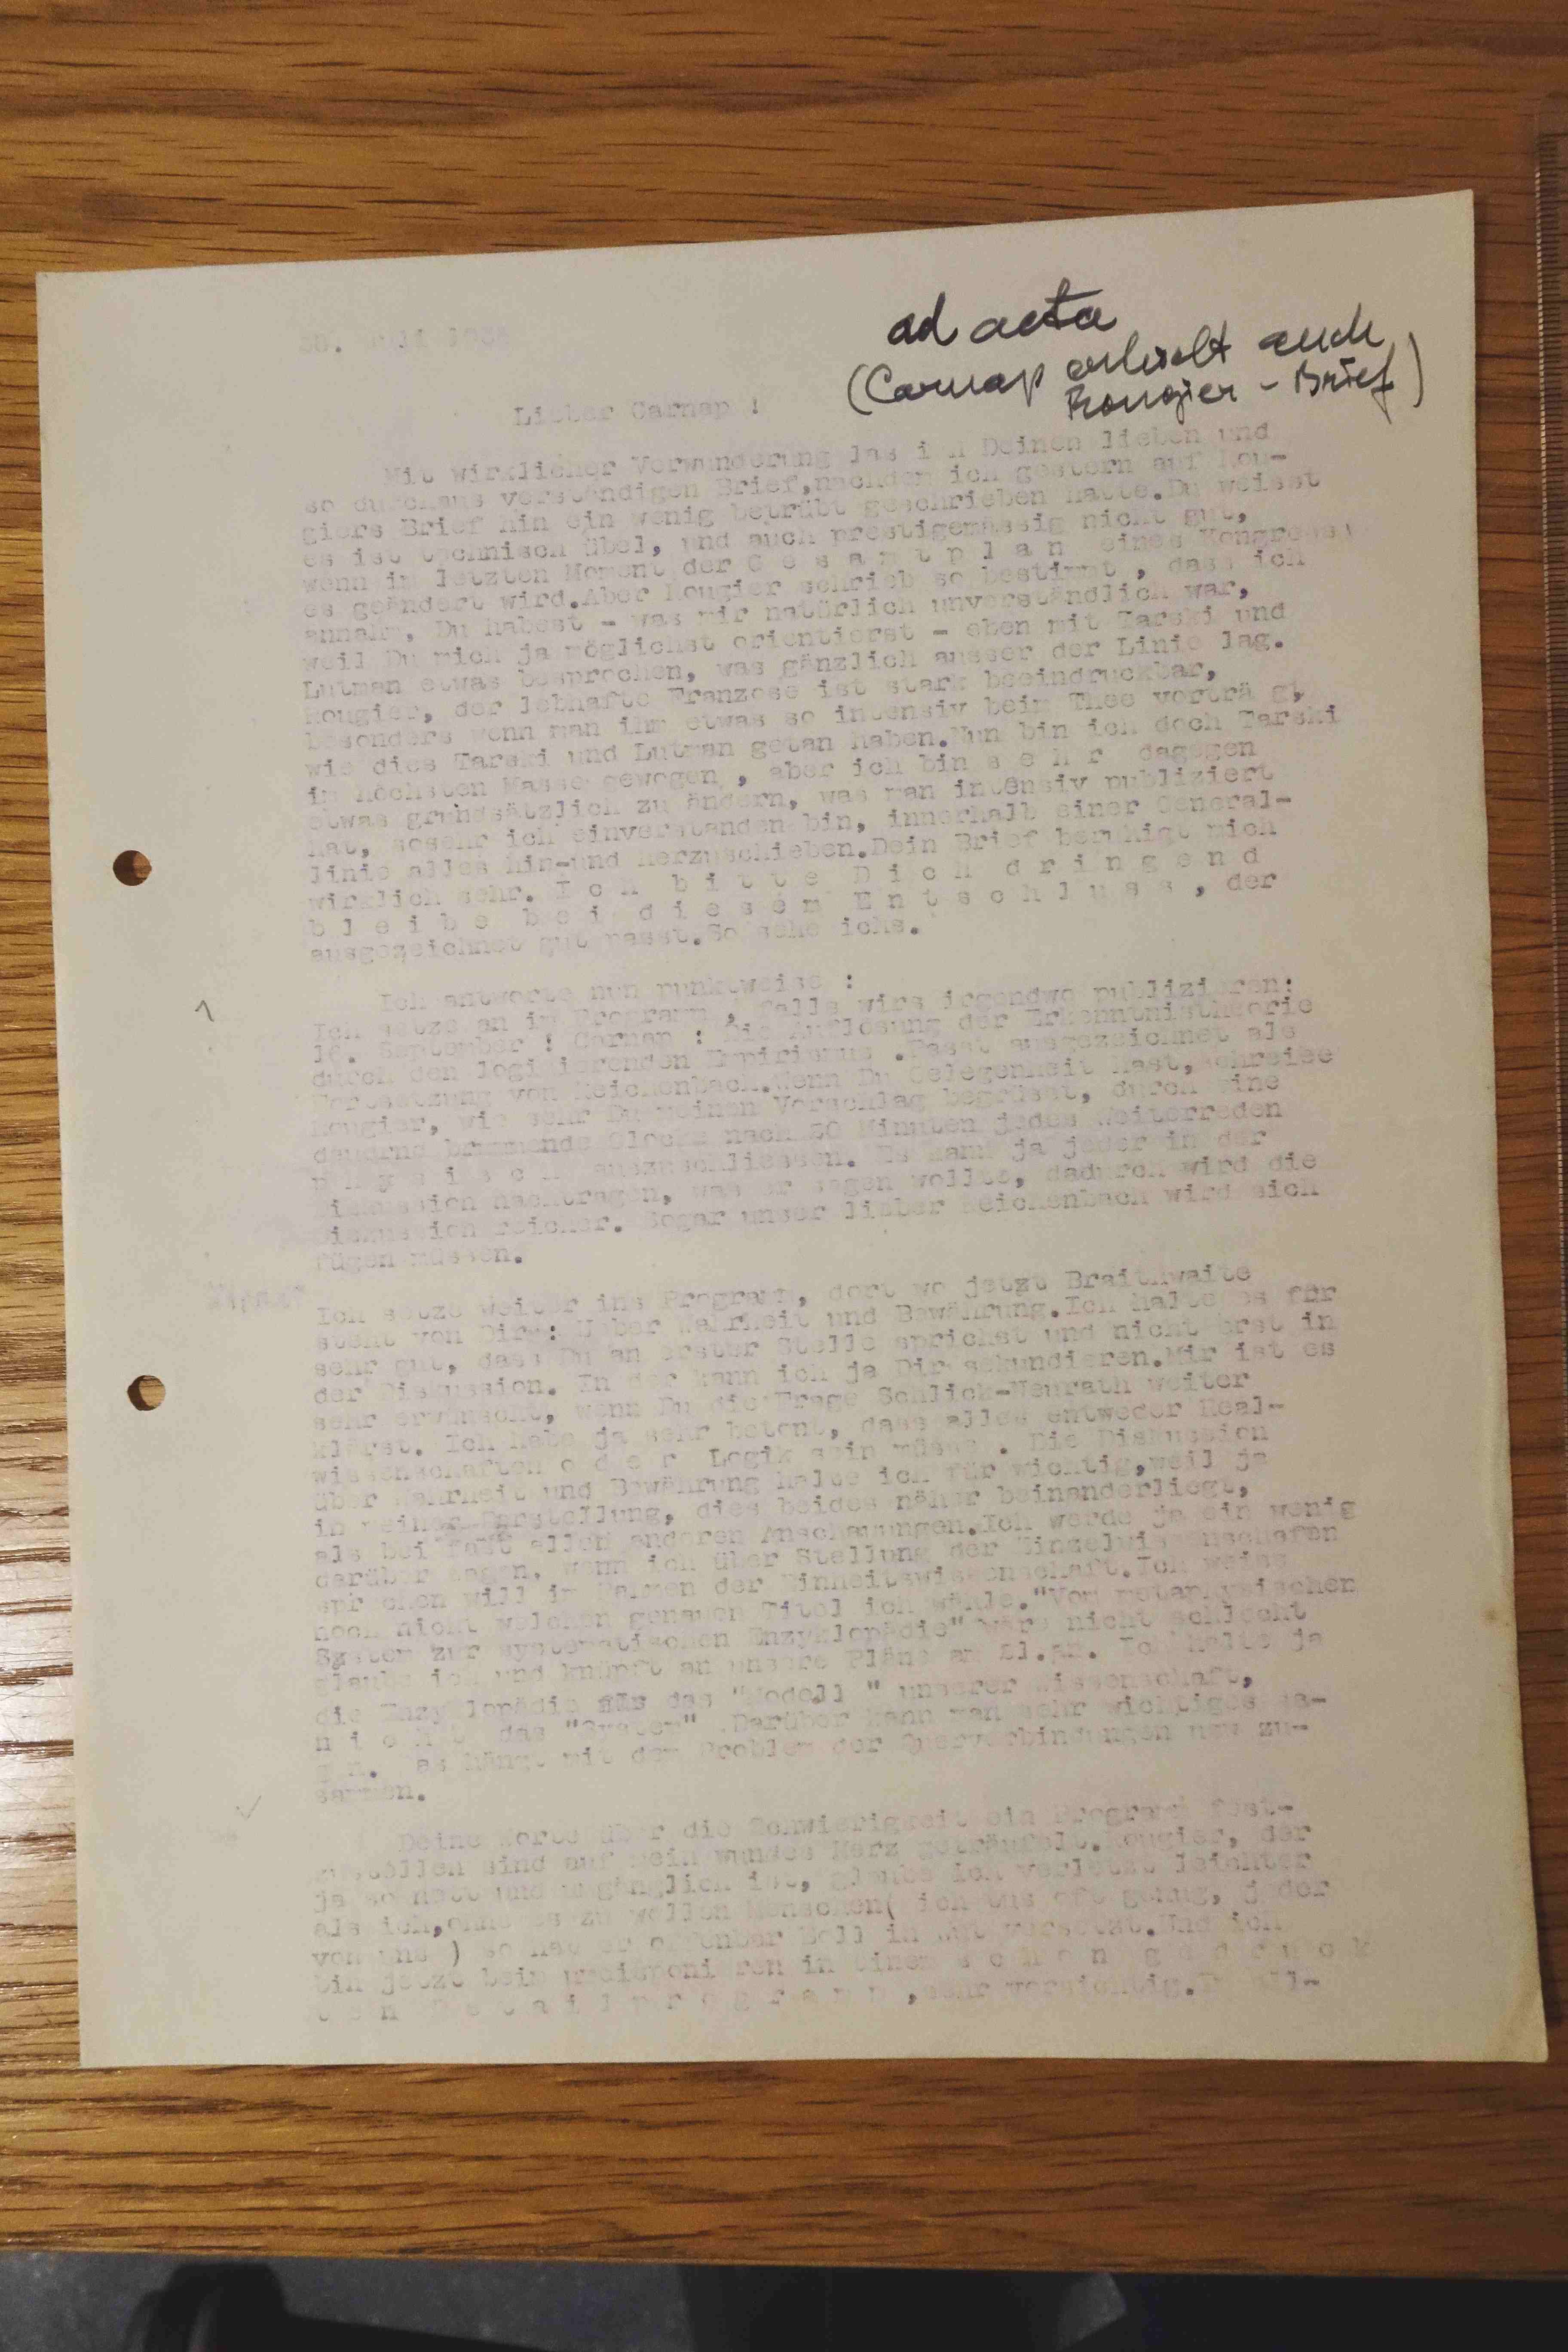 ad acta
(Carnap erhielt auch
Rougier - Brief)
30. 193
Lieber Carnap !
Mit wirklicher Verwunderung las ich Deinen lieben und
so durchaus verständigen Brief,nachdem ich gestern auf Rou-
giers Brief hin ein wenig betrübt geschrieben hatte.Du weisst
es ist technisch übel, und auch prestigemässig nicht gut,
wenn im letzten Moment der G e s a m t p l a n eines Kongresses
es geändert wird.Aber Rougier schrieb so bestimmt , dass ich
annahm, Du habest - was mir natürlich unverständlich war,
weil Du mich ja möglichst orientierst - eben mit Tarski und
Lutman etwas besprochen, was gänzlich ausser der Linie lag.
Rougier, der lebhafte Franzose ist stark beeindruckbar,
besonders wenn man ihm etwas so intensiv beim Thee vorträ gt,
wie dies Tarski und Lutman getan haben.Nun bin ich doch Tarski
in höchsten Masse gewogen , aber ich bin s e h r dagegen
etwas grundsätzlich zu ändern, was man intensiv publiziert
hat, sosehr ich einverstanden bin, innerhalb einer General-
linie alles hin-und herzuschieben.Dein Brief beruhigt mich
wirklich sehr. I c h b i t t e D i c h d r i n g e n d
b l e i b e b e i d i e s e m E n t s c h l u s s , der
ausgezeichnet gut passt.So sehe ichs.
Ich antworte nun punktweise :
Ich setze an im Programm , falls wirs irgendwo publizieren:
16. September : Carnap : Die Auflösung der Erkenntnistheorie
durch den logi ierenden Empirismus .Passt ausgezeichnet als
Fortsetzung von Reichenbach.Wenn Du Gelegenheit hast,schreibe
Rougier, wie sehr Du meinen Vorschlag begrüsst, durch eine
dauernd brummende Glocke nach 20 Minuten jedes Weiterreden
p h y s i s c h auszuschliessen. Es kann ja jeder in der
Diskussion nachtragen, was er sagen wollte, dadurch wird die
Diskussion reicher. Sogar unser lieber Reichenbach wird sich
fügen müssen.
Ich setze weiter ins Programm, dort wo jetzt Braithwaite
steht von Dir : Ueber Wahrheit und Bewährung.Ich halte es für
sehr gut, dass Du an erster Stelle sprichst und nicht erst in
der Diskussion. In der kann ich ja Dir sekundieren.Mir ist es
sehr erwünscht, wenn Du die Frage Schlick-Neurath weiter
klärst. Ich habe ja sehr betont, dass alles entweder Real-
wissenschaften o d e r Logik sein müsse . Die Diskussion
über Wahrheit und Bewährung halte ich für wichtig,weil ja
in meiner Darstellung, dies beides näher beinanderliegt,
als bei fast allen anderen Anschauungen.Ich werde ja ein wenig
darüber sagen, wenn ich über Stellung der Einzelwissenschafen
spr chen will im Rahmen der Einheitswissenschaft.Ich weiss
noch nicht welchen genauen Titel ich wähle."Vom metaphysischen
System zur systematischen Enzyklopädie" wäre nicht schlecht
glaube ich und knüpft an unsere Pläne am 21.an. Ich halte ja
die Enzyklopädie für das "Modell " unserer Wissenschaft,
n i c h t das "System" .Darüber kann man sehr wichtiges sa-
g n. Das hängt mit dem Problem der Querverbindungen usw zu-
sammen.
Deine Worte über die Schwierigkeit ein Programm fest-
zustellen sind auf mein wundes Herz geträufelt.Rougier, der
ja so nett und umgänglich ist, glaube ich verletzt leichter
als ich,ohne es zu wollen Menschen( ich tus oft genug, jeder
von uns ) so hat er offenbar Boll in Wut versetzt.Und ich
bin jetzt beim umdisponieren in einem s c h o n g e d r u c k
t e n D e t a i l p r o g r a m m ,sehr vorsichtig.